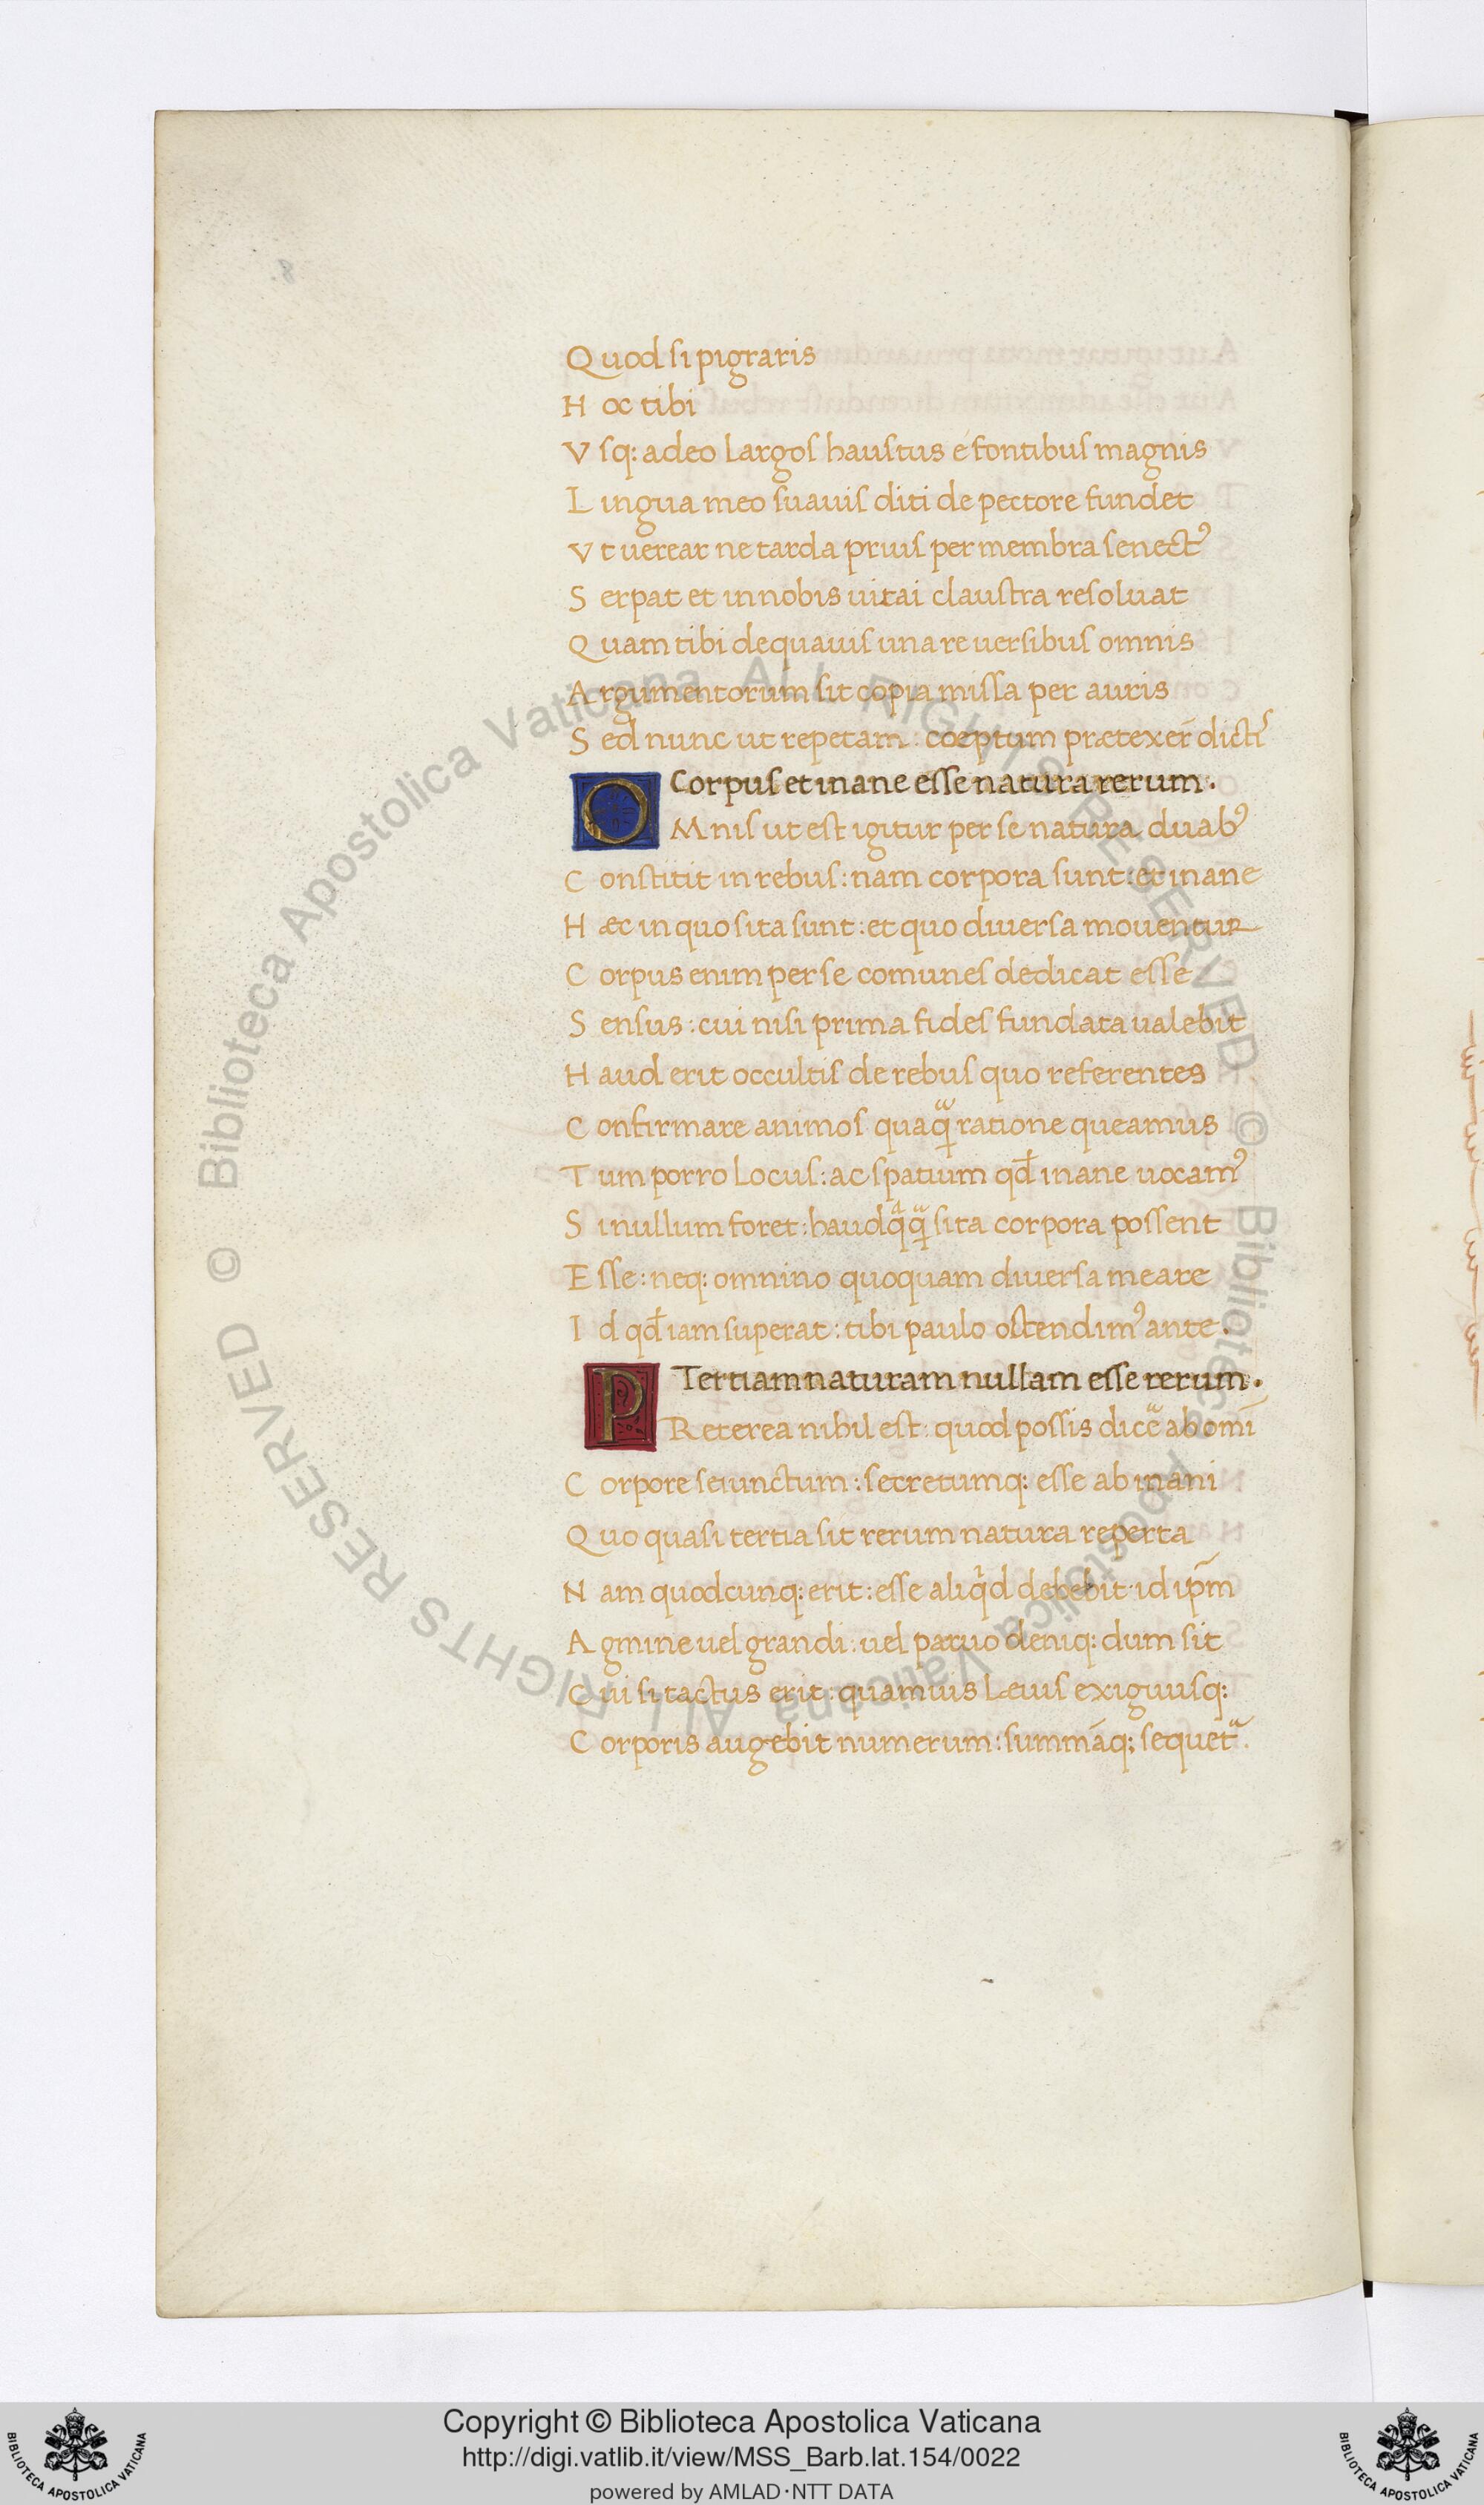 Quod si pigraris
Hoc tibi
Vsq: adeo largos haustus e fontibus magnis
Lingua meo suauis diti de pectore fundet
Vt uerear ne tarda prius per membra senectꝰ
Serpat et in nobis uitai claustra resoluat
Quam tibi de quauis una re uersibus omnis
Argumentorum sit copia missa per auris
Sed nunc ut repetam: coeptum prætexer̄ dictis
Corpus et inane esse natura rerum.
OMnis ut est igitur per se natura duabꝰ
Constitit in rebus: nam corpora sunt: et inane
Hæc in quo sita sunt: et quo diuersa mouentur
Corpus enim per se comunes dedicat esse
Sensus: cui nisi prima fides fundata ualebit
Haud erit occultis de rebus quo referentes
Confirmare animos quaqᷓ ratione queamus
Tum porro locus: ac spatium qd̄ inane uocamꝰ
Si nullum foret: haudqᷓqᷓ sita corpora possent
Esse: neq: omnino quoquam diuersa meare
Id qd̄ iam superat: tibi paulo ostendimꝰ ante.
Tertiam naturam nullam esse rerum.
PReterea nihil est: quod possis dicē ab omī
Corpore seiunctum: secretumq: esse ab inani
Quo quasi tertia sit rerum natura reperta
Nam quodcunq: erit: esse aliqͥd debebit id ip̄m
Agmine uel grandi: uel paruo deniq: dum sit
Cui si tactus erit: quamuis leuis exiguusq:
Corporis augebit numerum: summāq; sequetᷓ.
© Biblioteca Apostolica Vaticana ALL RIGHTS RESERVED
© Biblioteca Apostolica Vaticana ALL RIGHTS RESERVED
Copyright © Biblioteca Apostolica Vaticana
http://digi.vatlib.it/view/MSS_Barb.lat.154/0022
powered by AMLAD·NTT DATA
BIBLIOTECA APOSTOLICA VATICANA
BIBLIOTECA APOSTOLICA VATICANA